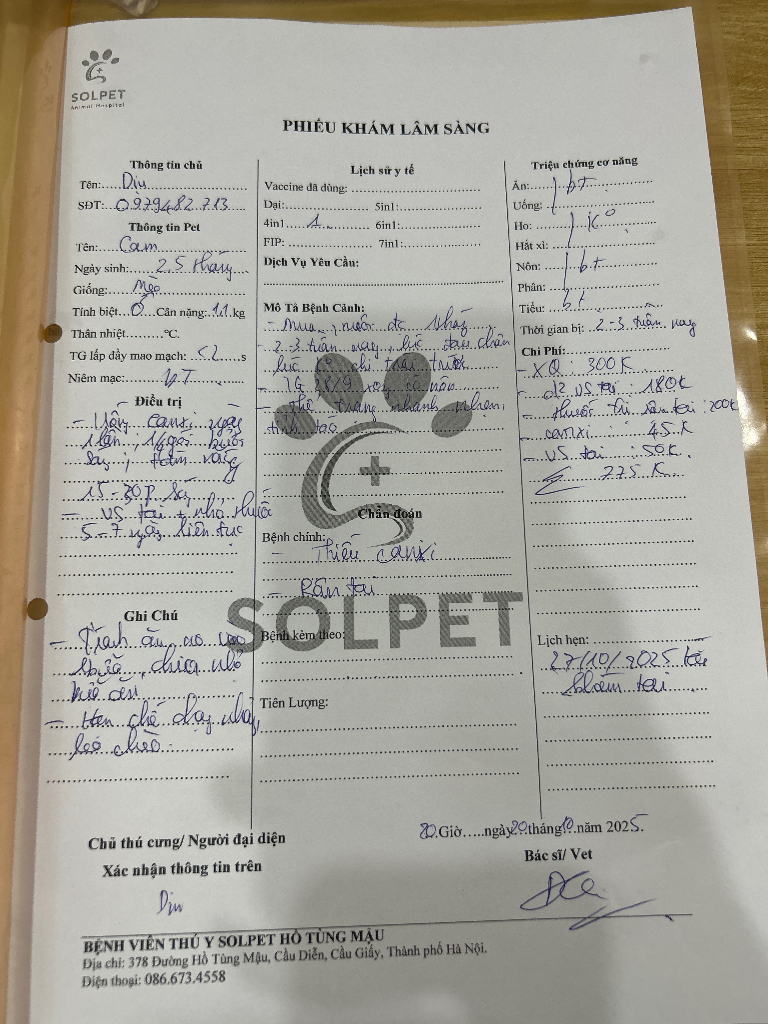 SOLPET
Animal Hospital
PHIẾU KHÁM LÂM SÀNG
Thông tin chủ
Tên: Dịu
SĐT: 0979482713
Thông tin Pet
Tên: Cam
Ngày sinh: 2,5 tháng
Giống: Mèo
Tính biệt: Cân nặng: 1,1 kg
Thân nhiệt ºC.
TG lấp đầy mao mạch: <2 s
Niêm mạc: BT
Điều trị
- Uống canxi ngày
1 lần, buổi
sáng, tắm nắng
15-30p
- VS tai + nhỏ thuốc
5-7 ngày liên tục
Ghi Chú
- Tránh ăn no vào
bữa, chia nhỏ
- Hạn chế chạy nhảy,
leo trèo.
Lịch sử y tế
Vaccine đã dùng:
Dại: 5in1:
4in1 1 6in1:
FIP: 7in1:
Dịch Vụ Yêu Cầu:
Mô Tả Bệnh Cảnh:
- Mua, nuôi đc tháng
- 2-3 tuần nay, đau chân
chi trái trước
- TG 28/9
- Thể trạng nhanh nhẹn,
tỉnh táo
Chẩn đoán
Bệnh chính:
- Thiếu canxi
- Rận tai
SOLPET
Bệnh kèm theo:
Tiên Lượng:
Triệu chứng cơ năng
Ăn: bt
Uống:
Ho: Kº
Hắt xì:
Nôn: bt
Phân:
Tiểu: bt
Thời gian bị: 2-3 tuần nay
Chi Phí:
- XQ 300K
- d2 VS tai: 180K
- thuốc trị rận tai: 200K
- canxi: 45K
- VS tai: 50K.
775K.
Lịch hẹn:
27/10/2025 tái
khám tai
20.Giờ.....ngày 20 tháng 10 năm 2025.
Chủ thú cưng/ Người đại diện
Xác nhận thông tin trên
Dịu
Bác sĩ/ Vet
BỆNH VIỆN THÚ Y SOLPET HỒ TÙNG MẬU
Địa chỉ: 378 Đường Hồ Tùng Mậu, Cầu Diễn, Cầu Giấy, Thành phố Hà Nội.
Điện thoại: 086.673.4558